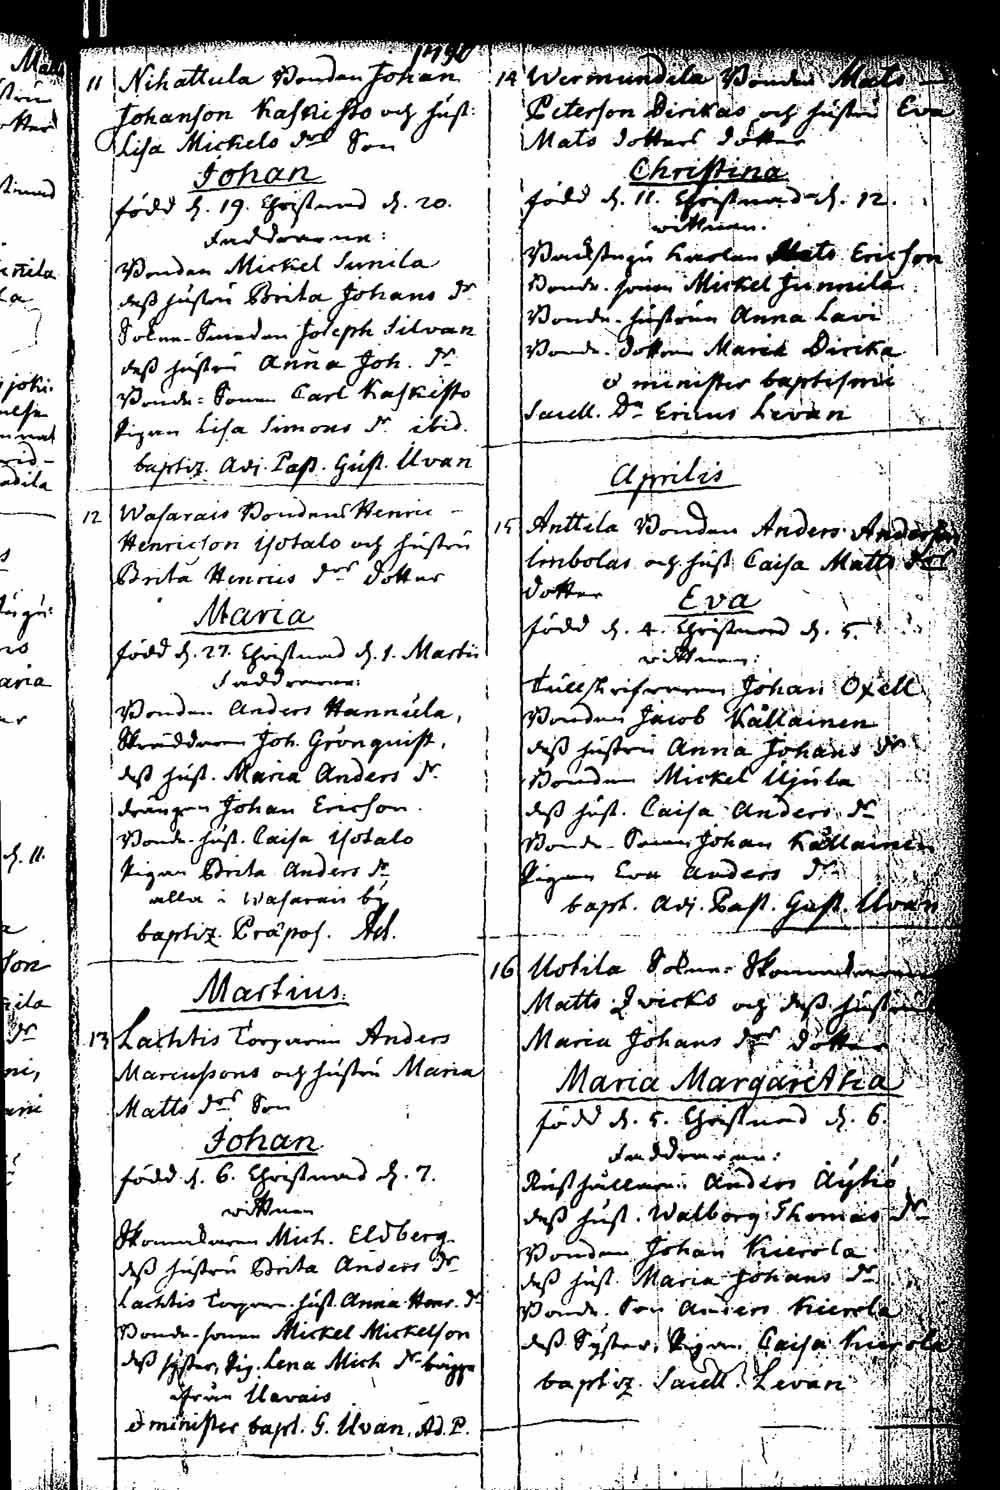 1790
11 Nihattula Bonden Johan
Johanson Kaskisto och hust:
Lisa Michels drs Son
Johan
född d. 19. Christnad d. 20.
Faddrarne:
Bonden Mickel Junila
dess hustru Brita Johans dr
Socne-Smeden Joseph Silvan
dess hustru Anna Joh. dr
Bonde-Sonen Carl Kaskisto
Pigan Lisa Simons dr ibid.
baptiz. Adj. Past. Gust. Uvan
12 Wasarais Bonden Henric
Henricson Yötalo och hustru
Brita Henrics drs dotter
Maria
född d. 27. Christnad d. 1. Martii
Faddrarne:
Bonden Anders Hannula,
Skräddaren Joh. Grönquist,
dess hust. Maria Anders dr
drängen Johan Ericson.
Bonde-hust. Caisa Yötalo
Pigan Brita Anders dr
alla i Wasarais by
baptiz. Præpos. Ad.
Martius.
13 Lachtis Torparen Anders
Marcussons och hustru Maria
Matts drs Son
Johan
född d. 6. Christnad d. 7.
wittnen
Skomakaren Mich. Eldberg
dess hustru Brita Anders dr
Lachtis Torpare-hust. Anna Henr. dr
Bonde-sonen Mickel Mickelson
dess syster, Pig. Lena Mich dr bägge
ifrån Uavais
et minister bapt. G. Uvan, Ad. P.
14 Wermundila Bonden Mats
Peterson Dirikas och hustru Eva
Mats dotters dotter
Christina
född d. 11. Christnad d. 12.
wittnen.
Mats Ericson
Bonde-sonen Mickel Junnila
Bonde-hustrun Anna Lavi
Bonde-dottren Maria Dirika
et minister baptismi
Sacell. Dn Ericus Levan
Aprilis
15 Anttila Bonden Anders Anderson
Simbolas och hust Caisa Matts drs
dotter
Eva
född d. 4. Christnad d. 5.
wittnen:
Johan Oxell
Bonden Jacob Kållainen
dess hustru Anna Johans dr
Bonden Mickel Ujula
dess hust. Caisa Anders dr
Bonde-Sonen Johan Kållainen
Pigan Eva Anders dr
bapt. Adj. Past. Gust. Uvan
16 Uotila Socne-Skomakaren
Matts Qvicks och dess hustru
Maria Johans drs dotter
Maria Margaretha
född d. 5. Christnad d. 6.
Faddrarne:
Rusthållaren Anders Äyhö
dess hust. Walborg Thomas dr
Bonden Johan Kierola
dess hust. Maria Johans dr
Bonde-Son Anders Kierola
dess Syster, Pigan Caisa Kierola
baptiz. Sacell. Levan